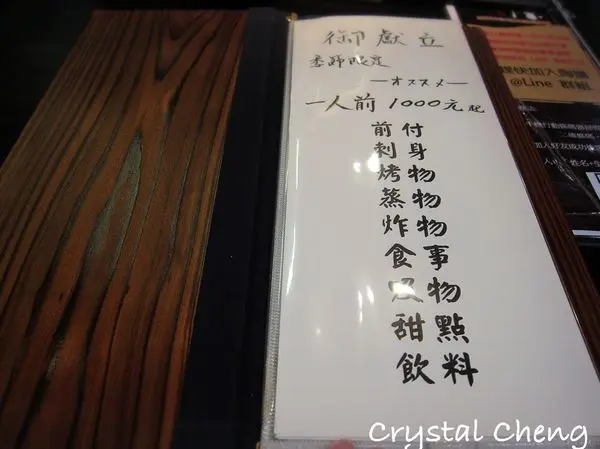 御献立
季節限定
—オススメ—
一人前 1000元起
前付
刺身
烤物
蒸物
炸物
食事
吸物
甜點
飲料
加入
@Line 群組
Crystal Cheng